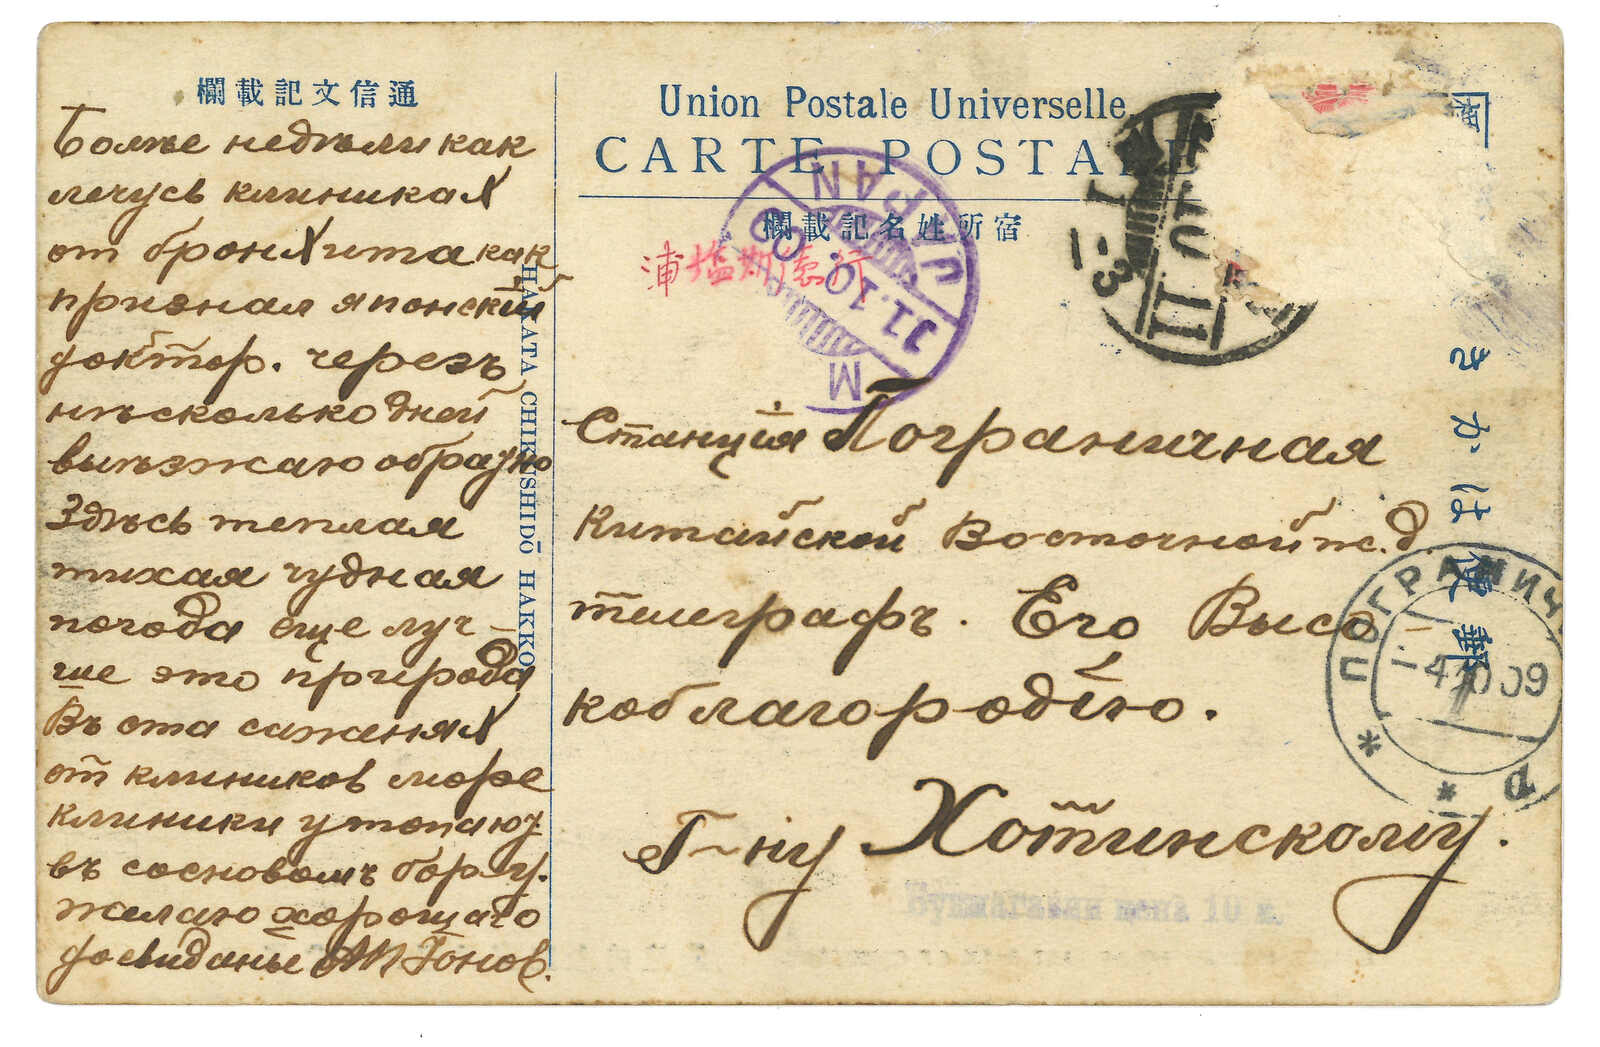 欄載記文信通
Болѣе недѣли как
лечусь клиниках
от бронхита как
признал японский
доктор. черезъ
нѣсколько дней
выѣзжаю обратно
Здѣсь теплая
тихая чудная
погода еще луч-
ше это природа
Въ ста саженях
от клиников море
клиники утопают
въ сосновом бору.
желаю хорошаго
досвиданье
HAKATA CHIKUSHIDŌ HAKKO
Union Postale Universelle
CARTE POSTALE
欄載記名姓所宿
浦塩斯德行
JAPAN
11.10.09
M
きかは便郵
Станція Пограничная
Китайской Восточной ж.д.
телеграфъ. Его Высо
коблагородію.
Г-ну Хотинскому.
ПОГРАНИЧ
-4 10 09
цена 10 к.